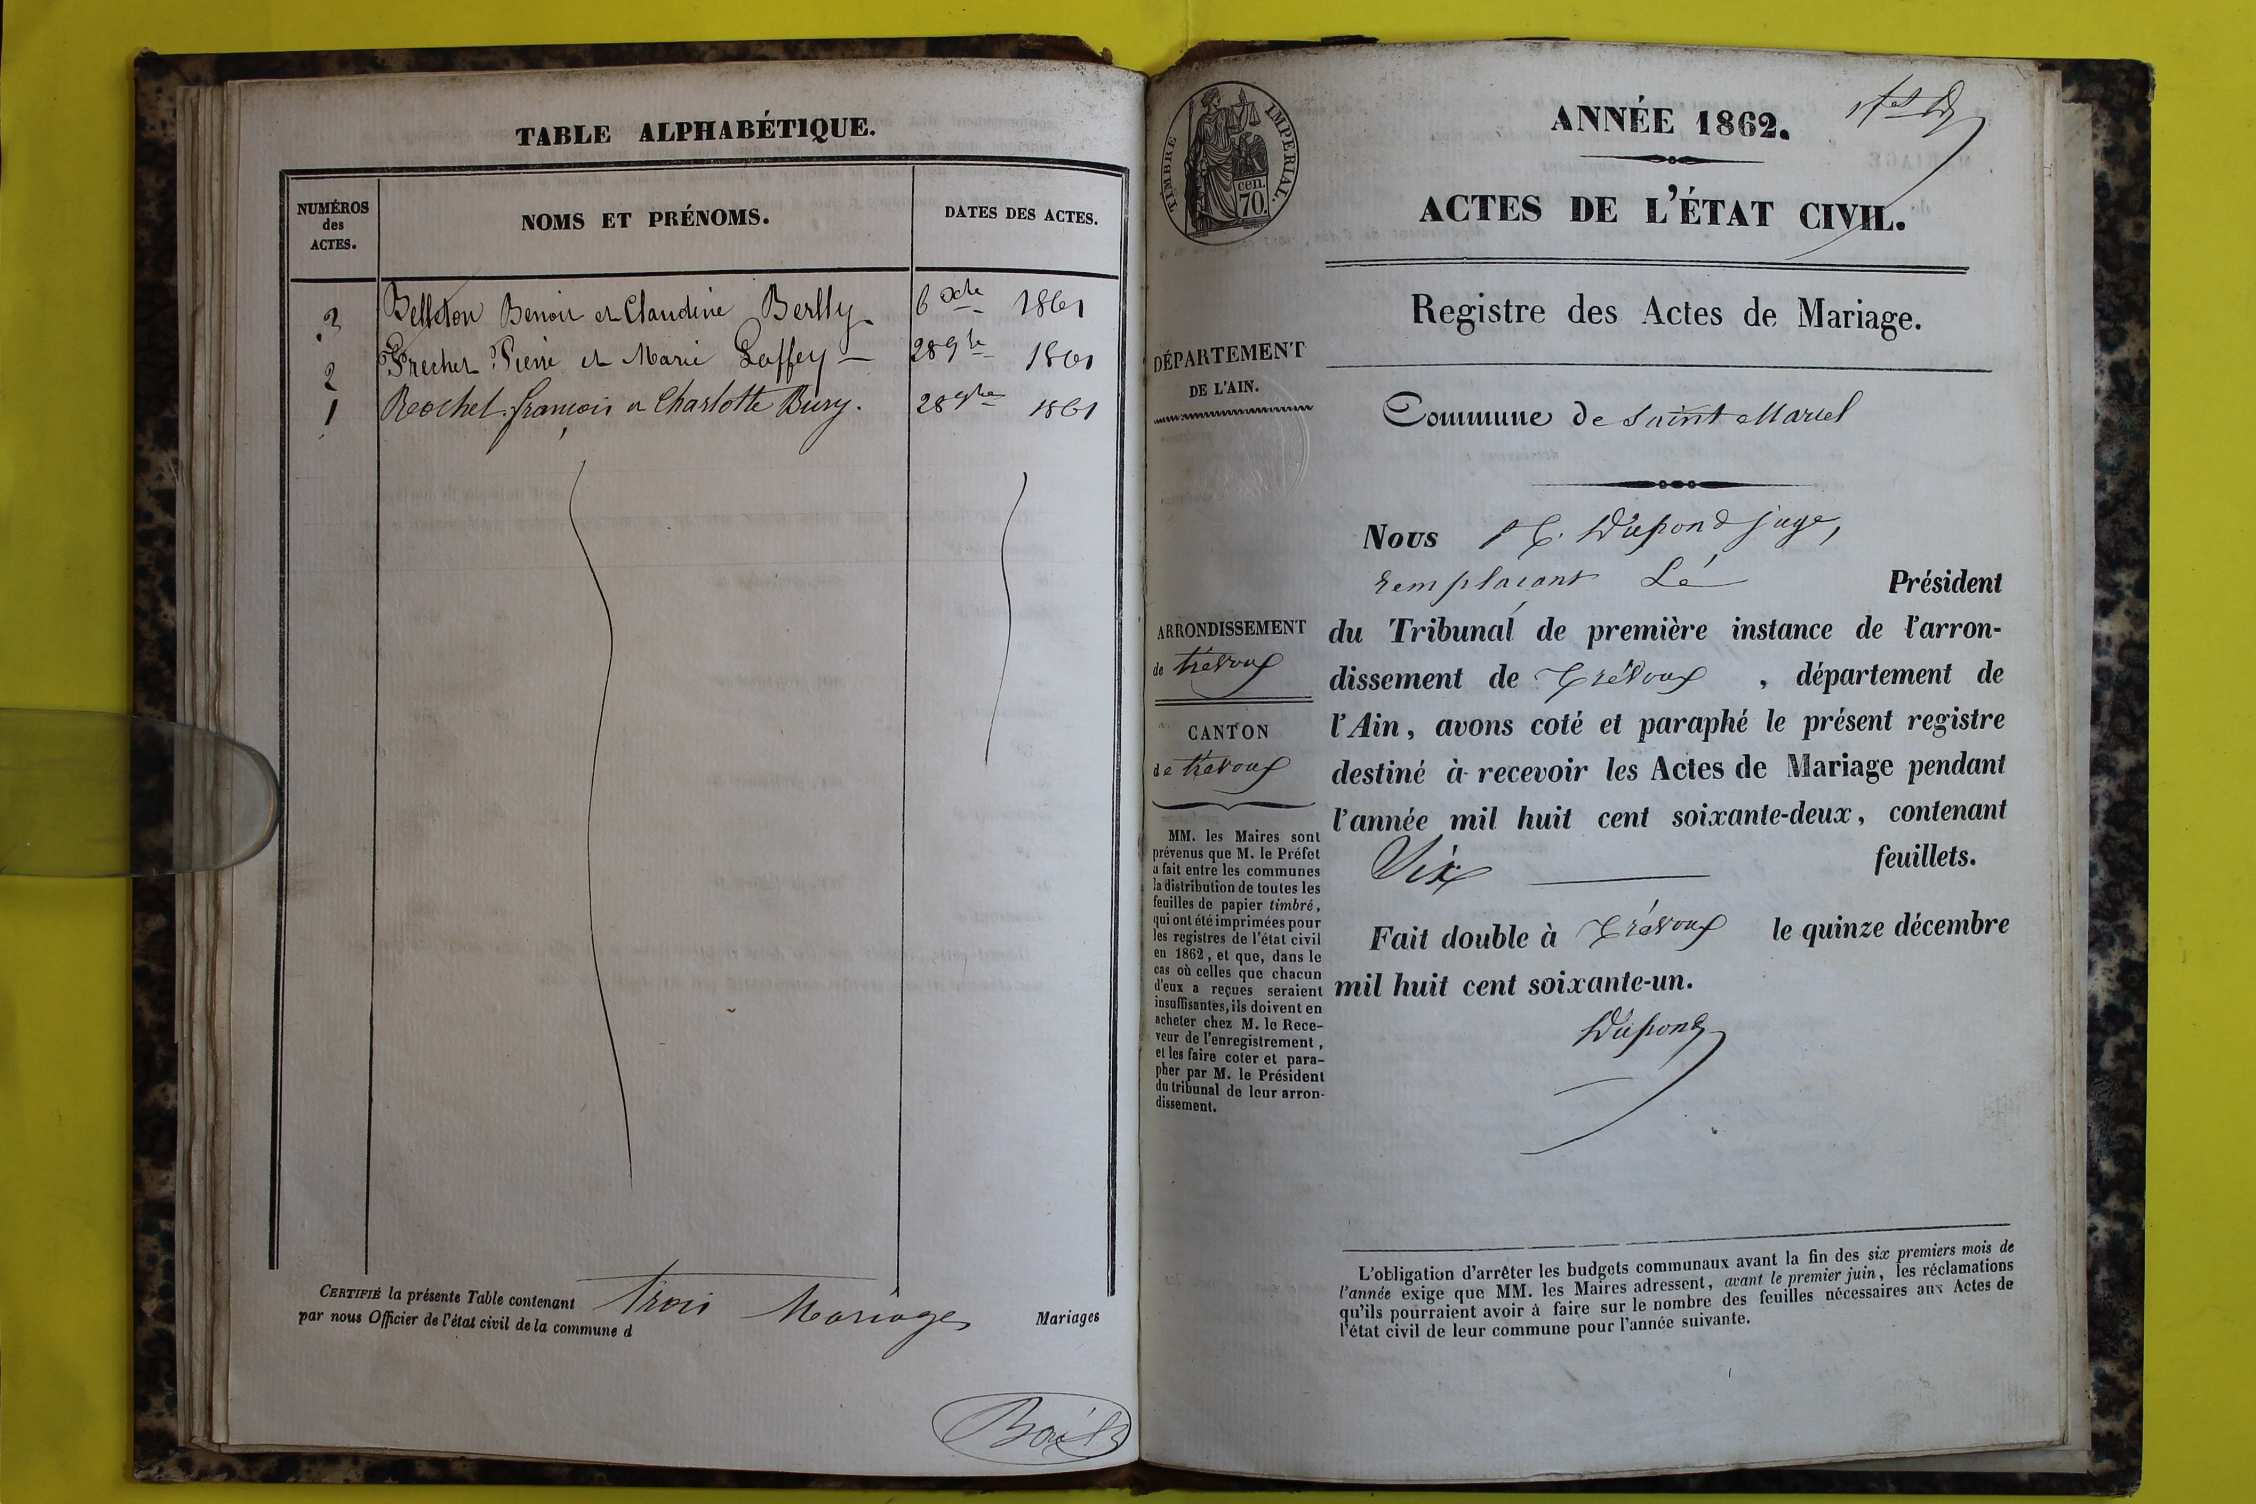 TABLE ALPHABÉTIQUE.
NUMÉROS des ACTES.
NOMS ET PRÉNOMS.
DATES DES ACTES.
3 Belleton Benoit et Claudine Berlly 6 Xbre 1861
2 Grechet Pierre et Marie Laffey 28 9bre 1861
1 Rochet françois et Charlotte Bury. 28 9bre 1861
CERTIFIÉ la présente Table contenant trois Mariages Mariages
par nous Officier de l'état civil de la commune d
TIMBRE IMPERIAL.
cen.
70.
ANNÉE 1862.
ACTES DE L'ÉTAT CIVIL.
Registre des Actes de Mariage.
DÉPARTEMENT
DE L'AIN.
Commune de Saint Marcel
Nous Dupond juge,
remplaçant Le Président
ARRONDISSEMENT
de trévoux
CANTON
de trévoux
du Tribunal de première instance de l'arron-
dissement de Trévoux , département de
l'Ain, avons coté et paraphé le présent registre
destiné à recevoir les Actes de Mariage pendant
l'année mil huit cent soixante-deux, contenant
Six feuillets.
Fait double à Trévoux le quinze décembre
mil huit cent soixante-un.
Dupond
MM. les Maires sont
prévenus que M. le Préfet
a fait entre les communes
la distribution de toutes les
feuilles de papier timbré,
qui ont été imprimées pour
les registres de l'état civil
en 1862, et que, dans le
cas où celles que chacun
d'eux a reçues seraient
insuffisantes, ils doivent en
acheter chez M. le Rece-
veur de l'enregistrement,
et les faire coter et para-
pher par M. le Président
du tribunal de leur arron-
dissement.
L'obligation d'arrêter les budgets communaux avant la fin des six premiers mois de
l'année exige que MM. les Maires adressent, avant le premier juin, les réclamations
qu'ils pourraient avoir à faire sur le nombre des feuilles nécessaires aux Actes de
l'état civil de leur commune pour l'année suivante.